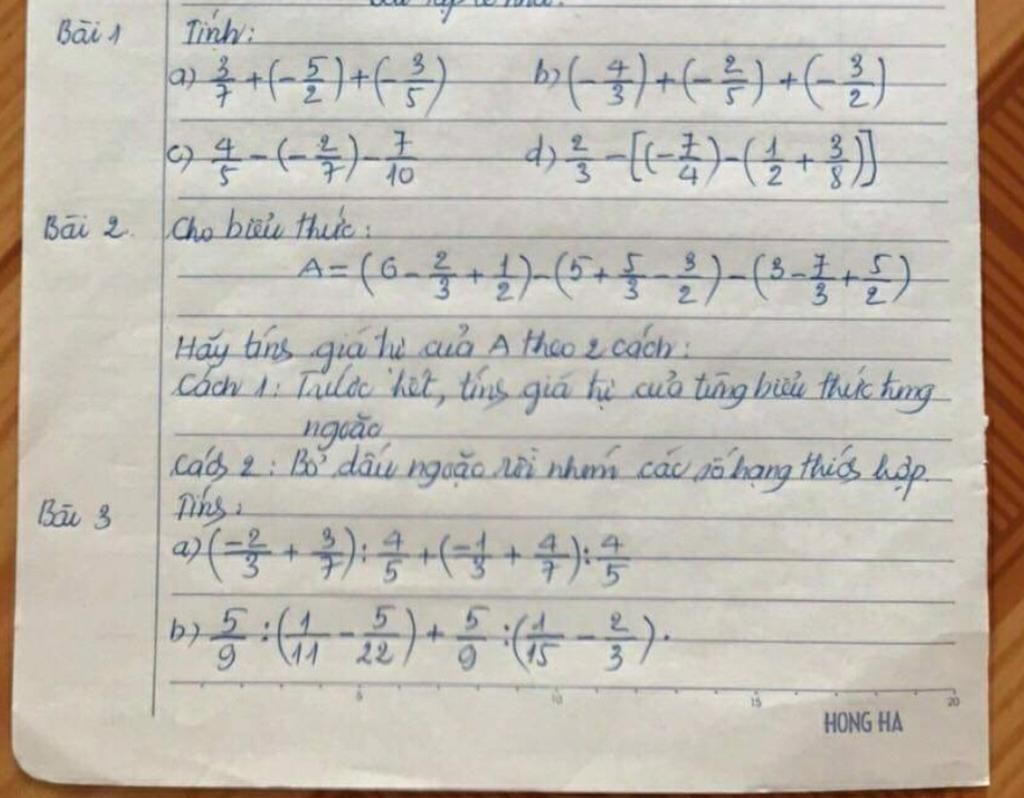 Bài 1 Tính:
a) 3/7 + (-5/2) + (-3/5) b) (-4/3) + (-2/5) + (-3/2)
c) 4/5 - (-2/7) - 7/10 d) 2/3 - [(-7/4) - (1/2 + 3/8)]
Bài 2. Cho biểu thức:
A = (6 - 2/3 + 1/2) - (5 + 5/3 - 3/2) - (3 - 7/3 + 5/2)
Hãy tính giá trị của A theo 2 cách:
Cách 1: Trước hết, tính giá trị của từng biểu thức trong
ngoặc
Cách 2: Bỏ dấu ngoặc rồi nhóm các số hạng thích hợp.
Bài 3 Tính:
a) (-2/3 + 3/7) : 4/5 + (-1/3 + 4/7) : 4/5
b) 5/9 : (1/11 - 5/22) + 5/9 : (1/15 - 2/3).
5 10 15 20
HONG HA